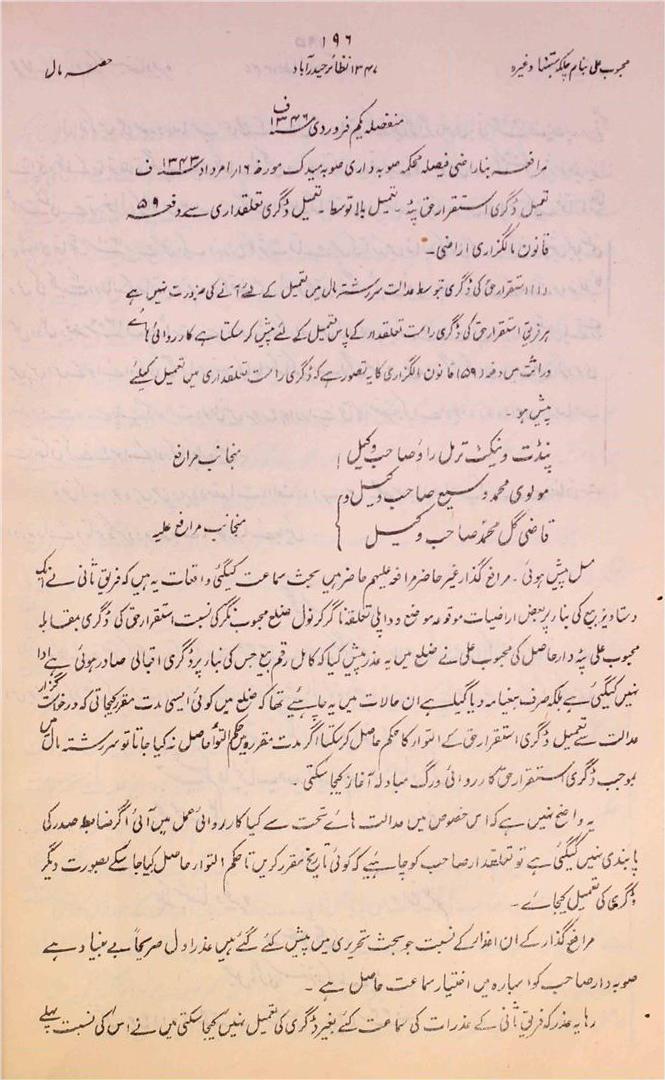 ۱۹۶
محبوب علی بنام چلکہ بتنہا وغیرہ ۱۳۴۷ نظائر حیدرآباد حصہ مال
منفصلہ یکم فروردی ۱۳۴۶ ف
مرافعہ بناراضی فیصلہ محکمہ صوبہ داری صوبہ میدک مورخہ ۱۶ر امرداد ۱۳۴۳ ف
تعمیل ڈگری استقرار حق پٹہ۔ تعمیل بلا توسط۔ تعمیل ڈگری تعلقداری سے دفعہ ۵۹
قانون مالگزاری اراضی۔
(۱) استقرار حق کی ڈگری بتوسط عدالت سررشتہ مال میں تعمیل کے لئے آنے کی ضرورت نہیں ہے
ہر فریق استقرار حق کی ڈگری راست تعلقدار کے پاس تعمیل کے لئے پیش کر سکتا ہے کارروائی ہائے
وراثت میں دفعہ (۵۹) قانون مالگزاری کا یہ تصور ہے کہ ڈگری راست تعلقداری میں تعمیل کیلئے
پیش ہو۔
پنڈت ونیکٹ نرمل راؤ صاحب وکیل منجانب مرافع
مولوی محمد وسیع صاحب وکیل دوم
قاضی گل محمد صاحب وکیل منجانب مرافع علیہ
مسل پیش ہوئی۔ مرافعہ گذار غیر حاضر مرافعہ علیہم حاضر ہیں بحث سماعت کیگئی واقعات یہ ہیں کہ فریق ثانی نے ایک
دستاویز بیع کی بنا پر بعض اراضیات موقوعہ موضع ودا پلی تعلقہ ناگر کرنول ضلع محبوب نگر کی نسبت استقرار حق کی ڈگری بمقابلہ
محبوب علی پٹہ دار حاصل کی محبوب علی نے ضلع میں یہ عذر پیش کیا کہ کامل رقم بیع جس کی بنا پر ڈگری اقبالی صادر ہوئی ہے ادا
نہیں کیگئی ہے بلکہ صرف بیعنامہ دیا گیا ہے ان حالات میں یہ چاہیے تھا کہ ضلع میں کوئی ایسی مدت مقرر کیجاتی کہ درخواست گزار
عدالت سے تعمیل ڈگری استقرار حق کے التوار کا حکم حاصل کر سکتا اگر مدت مقررہ میں حکم التوا حاصل نہ کیا جاتا تو سررشتہ مال میں
بموجب ڈگری استقرار حق کارروائی ورک مبادلہ آغاز کیجا سکتی۔
یہ واضح نہیں ہے کہ اس خصوص میں عدالت ہائے تحت سے کیا کارروائی عمل میں آئی اگر ضابطہ صدر کی
پابندی نہیں کیگئی ہے تو تعلقدار صاحب کو چاہیے کہ کوئی تاریخ مقرر کریں تا حکم التوار حاصل کیا جا سکے بصورت دیگر
ڈگری کی تعمیل کیجائے۔
مرافعہ گذار کے ان اعذار کے نسبت جو بحث تحریری میں پیش کئے گئے ہیں عذر اول صریحاً بے بنیاد ہے
صوبہ دار صاحب کو اسبارہ میں اختیار سماعت حاصل ہے۔
رہا یہ عذر کہ فریق ثانی کے عذرات کی سماعت کئے بغیر ڈگری کی تعمیل نہیں کیجا سکتی میں نے اس کی نسبت پہلے